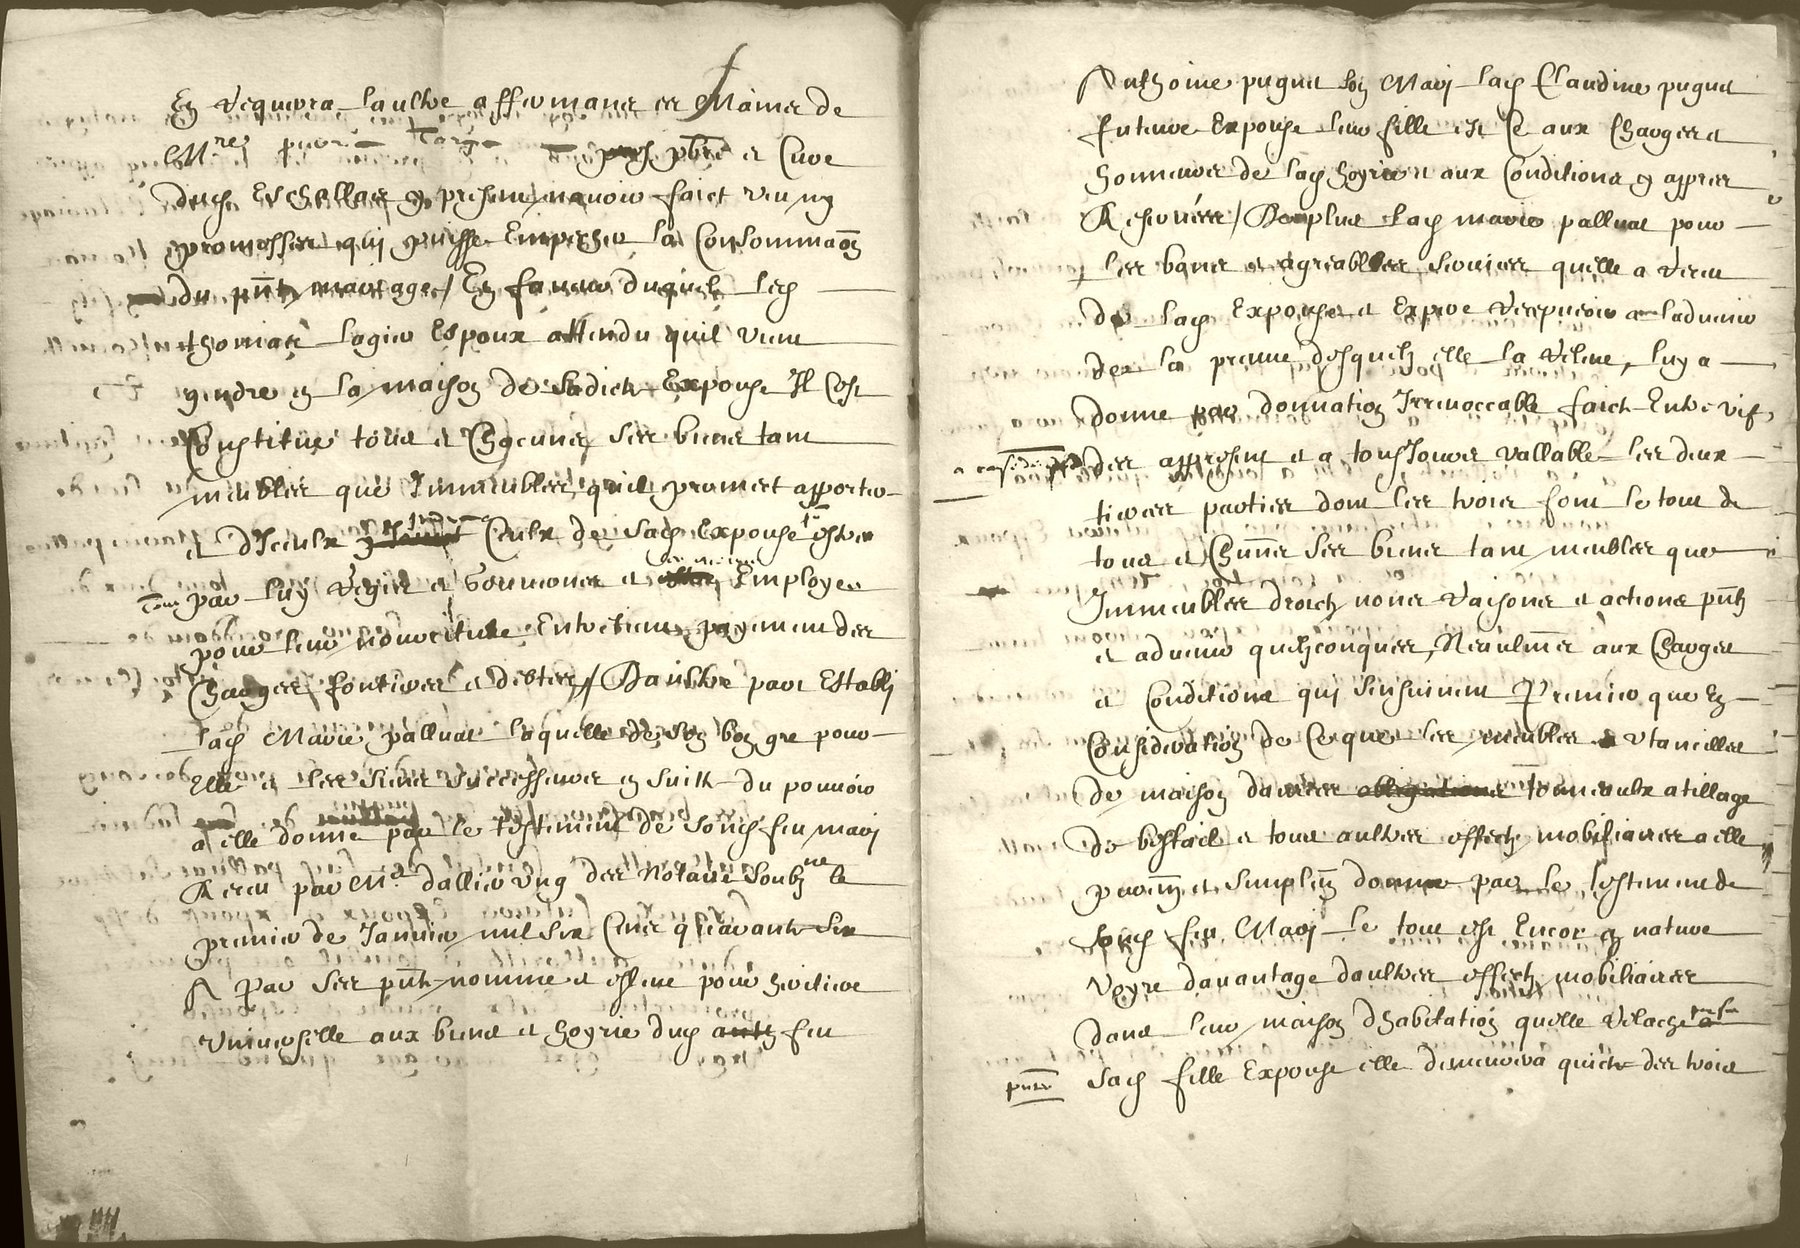 En requerra laultre affirmans es Mains de
Mre pbre et Cure
dud Eschallas presens navoir faict veu ny
promesses qui puisse Empescher la Consommaon
du pnt mariage / En faveur duquel led
thomas Espoux attendu quil vient
gendre en la maison de sadicte Expouse Il Cest
Constitue tous et Chacuns ses biens tant
meubles que Immeubles quil promect apporter
et diceulx Ceulx de sad Expouse estre
par luy Regir et Gouverner et Employer
pour leur nourriture Entretient payement des
Charges et debtes // Daultre part Establi
lad Marie palluat laquelle de son bon gre pour
Elle et les siens successeurs en suitte du pouvoir
a elle donne par le testement de sond feu mari
Receu par Me dallier Ung des Notaire soubzne le
premier de Janvier mil six Cens quarante six
A par ses pnt nomme et esleue pour heritiere
universelle aux biens et hoyrie dud feu
Anthoine pugnet son Mari lad Claudine pugnet
future Expouse leur fille et Ce aux Charges et
honneurs de lad hoyrie et aux Conditions apres
Reservées / De plus lad marie palluat pour
les bons et agreables services quelle a receu
de lad Expouse et Espere Recepvoir a ladvenir
de la preuve desquels elle la Releve, luy a
donne par donnation Irrevoccable faicte Entre vifz
des apresent et a tousJours vallable les deux
tieres parties dont les trois font le tout de
tous et Chuns ses biens tant meubles que
Immeubles droictz noms Raisons et actions pntz
et advenir quelzconques, Neaulmes aux Charges
et Conditions qui sensuivent Premier que En
Consideration de Ce que les meubles et Utancilles
de maison danrées tonneaulx atillage
de bestail et tous aultres effectz mobiliaires a elle
purem et simplem donne par le testement de
sond feu Mari le tout est Encor en nature
Voyre davantage daultres effectz mobiliaires
dans leur maison dhabitation quelle Relache a
sad fille Expouse elle demeurera quicte des trois